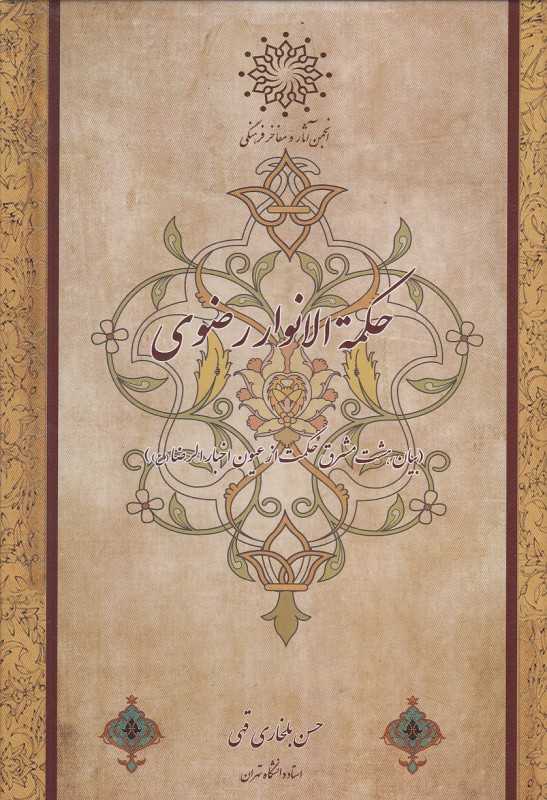 انجمن آثار و مفاخر فرهنگی
حکمة الانوار رضوی
(بیان هشت مشرق حکمت از عیون اخبار الرضا(ع))
حسن بلخاری قهی
استاد دانشگاه تهران